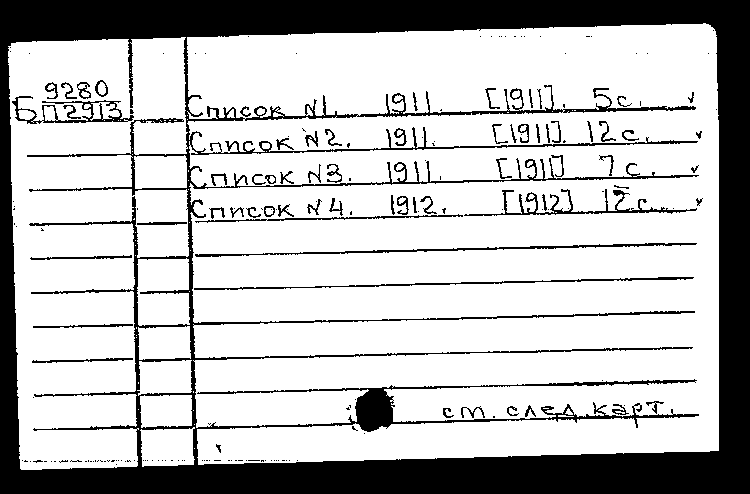 9280
Б П2913
Список №1. 1911. [1911]. 5с. ✓
Список №2. 1911. [1911]. 12с. ✓
Список №3. 1911. [1911] 7с. ✓
Список №4. 1912. [1912] 12с. ✓
см. след. карт.